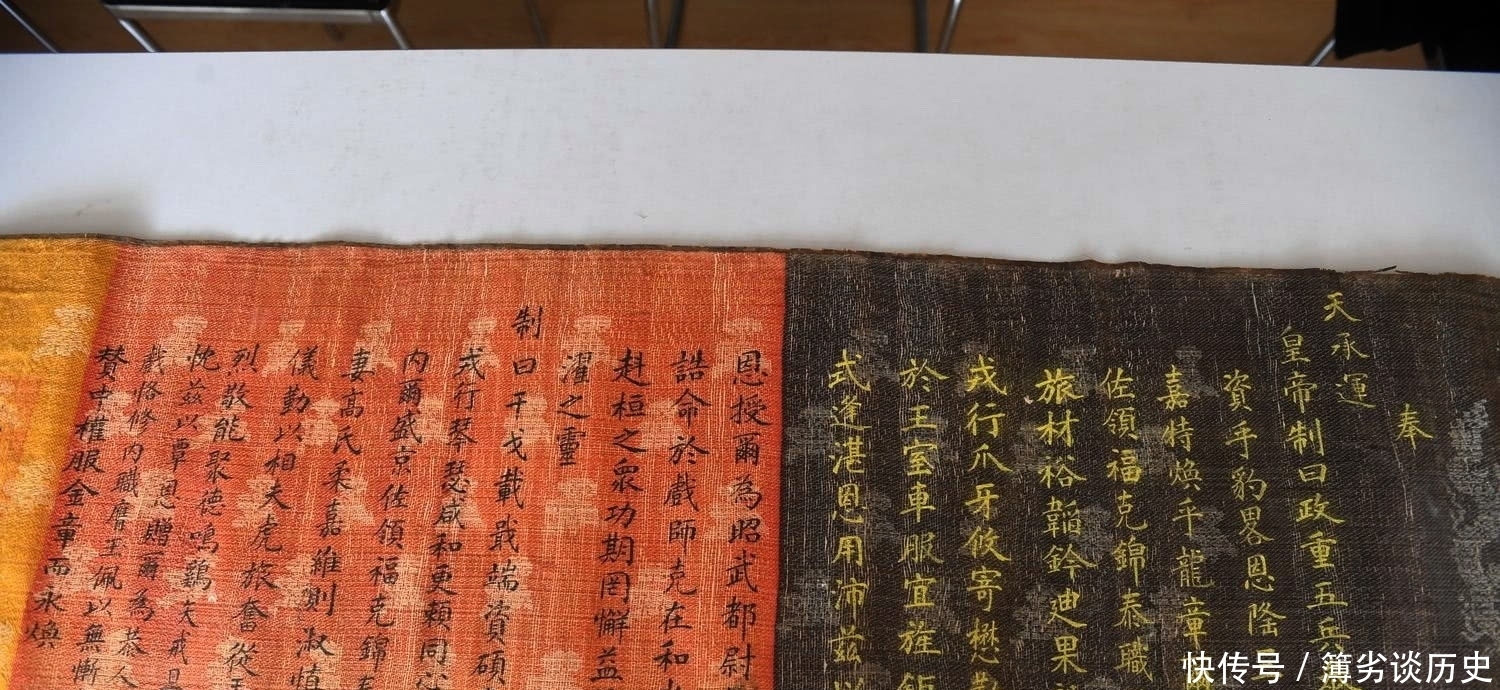 奉
天承運
皇帝制曰政重五兵
資乎豹畧恩隆
嘉特煥乎龍章
佐領福克錦泰職
旅材裕韜鈐迪果
戎行爪牙攸寄懋
於王室車服宜旌
式逢湛恩用沛茲以
恩授爾為昭武都尉
誥命於戲師克在和
赳桓之衆功期罔懈益
濯之靈
制曰干戈載戢端資碩
戎行琴瑟咸和更賴同
內爾盛京佐領福克錦泰
妻高氏柔嘉維則淑慎
儀勤以相夫虎旅奮從
烈敬能聚德鳴鷄夫戒旦
忱茲以覃恩贈爾為恭人
戲恪修內職膺玉佩以無慚
贊中權服金章而永煥
快传号 / 簿劣谈历史